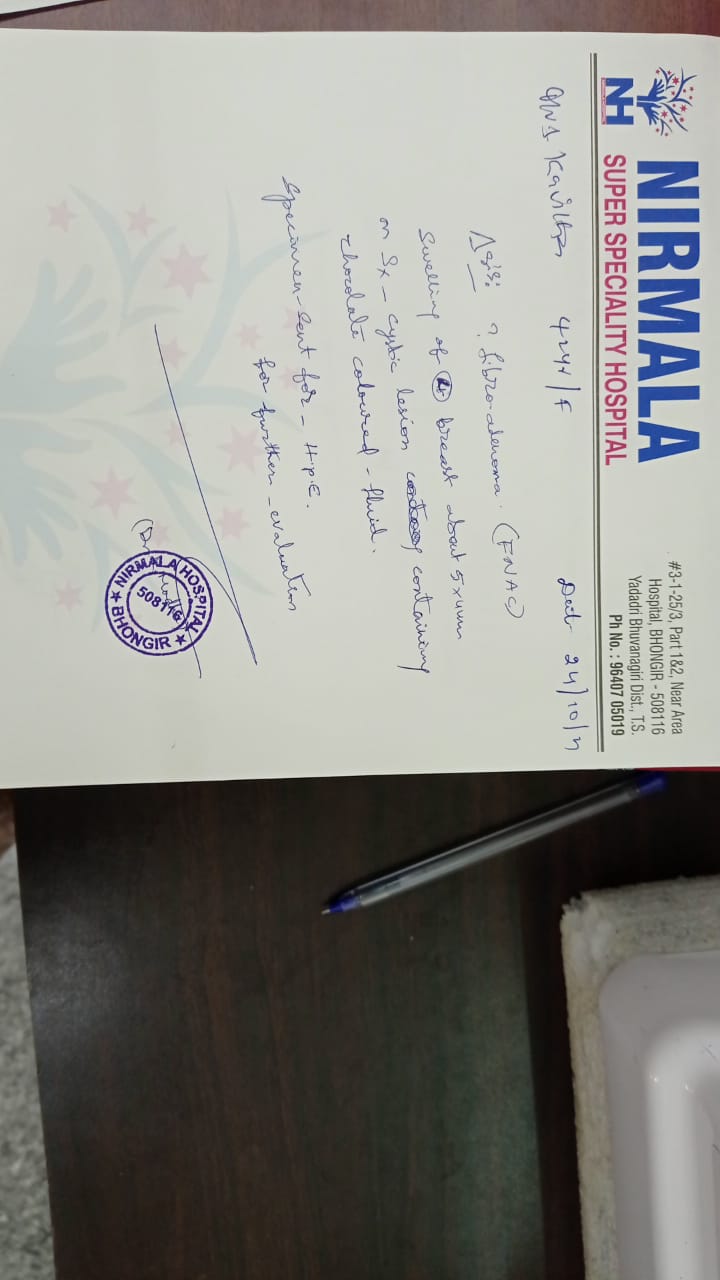 NIRMALA
NH SUPER SPECIALITY HOSPITAL
#3-1-25/3, Part 1&2, Near Area
Hospital, BHONGIR - 508116
Yadadri Bhuvanagiri Dist., T.S.
Ph No. : 96407 05019
Mrs Kavitha 42yr/F 24/10/
? fibro-adenoma. (FNAC)
Swelling of breast about 5x4
on Sx - cystic lesion containing
chocolate coloured - fluid.
Specimen - Sent for - H.P.E.
for further - evaluation
(Dr
NIRMALA HOSPITAL
508116
★ BHONGIR ★